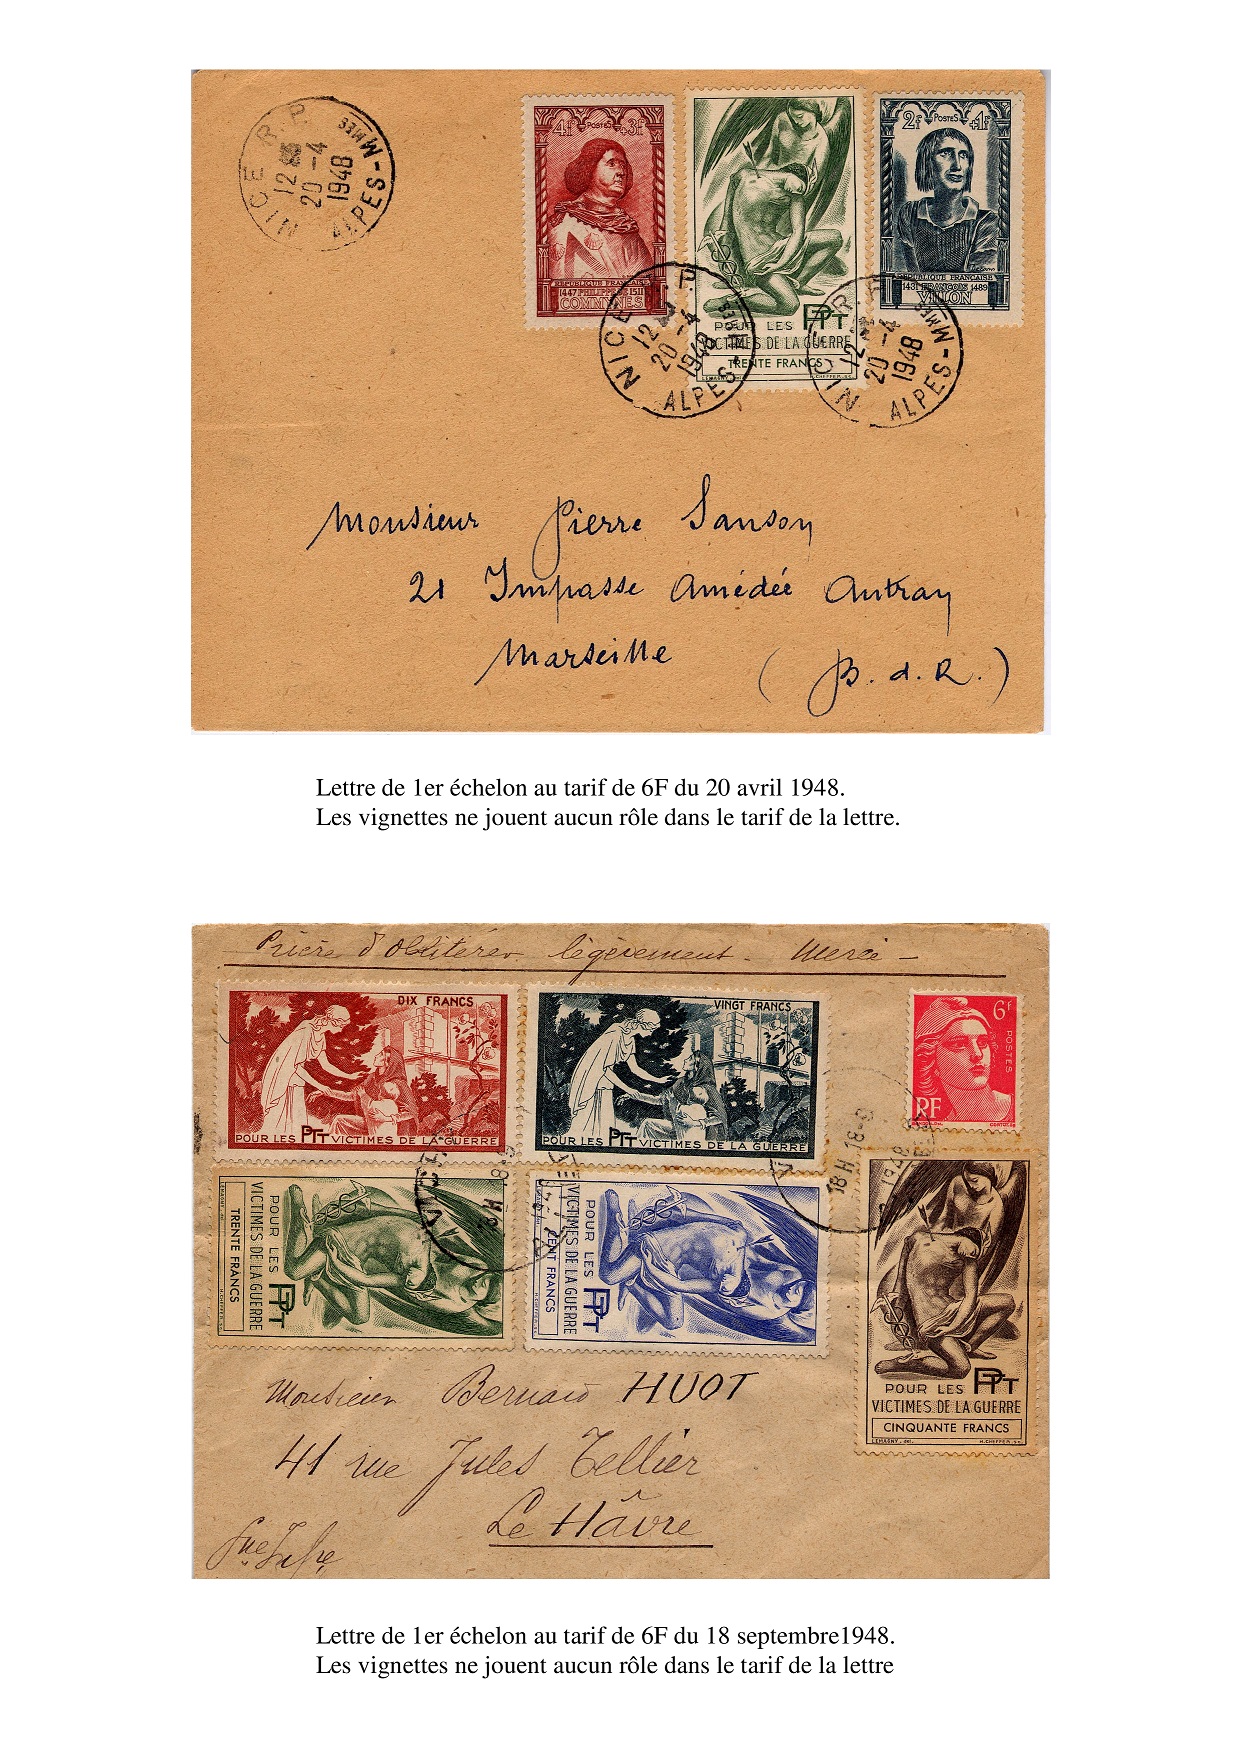 NICE R.P.
12H
20-4
1948
ALPES-MMES
4f POSTES +3f
REPUBLIQUE FRANÇAISE
1447 PHILIPPE DE 1511
COMMYNES
POUR LES PTT
VICTIMES DE LA GUERRE
TRENTE FRANCS
LEMAGNY. del. H.CHEFFER.sc.
2f POSTES +1f
REPUBLIQUE FRANÇAISE
1431 FRANÇOIS 1489
VILLON
NICE R.P.
12
20-4
1948
ALPES-MMES
NICE R.P.
12
20-4
1948
ALPES-MMES
Monsieur Pierre Sanson
21 Impasse Amédée Autran
Marseille (B.d.R.)
Lettre de 1er échelon au tarif de 6F du 20 avril 1948.
Les vignettes ne jouent aucun rôle dans le tarif de la lettre.
Prière d'oblitérer légèrement - Merci -
DIX FRANCS
POUR LES PTT VICTIMES DE LA GUERRE
VINGT FRANCS
POUR LES PTT VICTIMES DE LA GUERRE
6f
POSTES
RF
18H 18-9
1948
POUR LES PTT
VICTIMES DE LA GUERRE
TRENTE FRANCS
LEMAGNY. del. H.CHEFFER.sc.
POUR LES PTT
VICTIMES DE LA GUERRE
CENT FRANCS
POUR LES PTT
VICTIMES DE LA GUERRE
CINQUANTE FRANCS
LEMAGNY. del. H.CHEFFER.sc.
Monsieur Bernard HUOT
41 rue Jules Tellier
Le Hâvre
Lettre de 1er échelon au tarif de 6F du 18 septembre1948.
Les vignettes ne jouent aucun rôle dans le tarif de la lettre